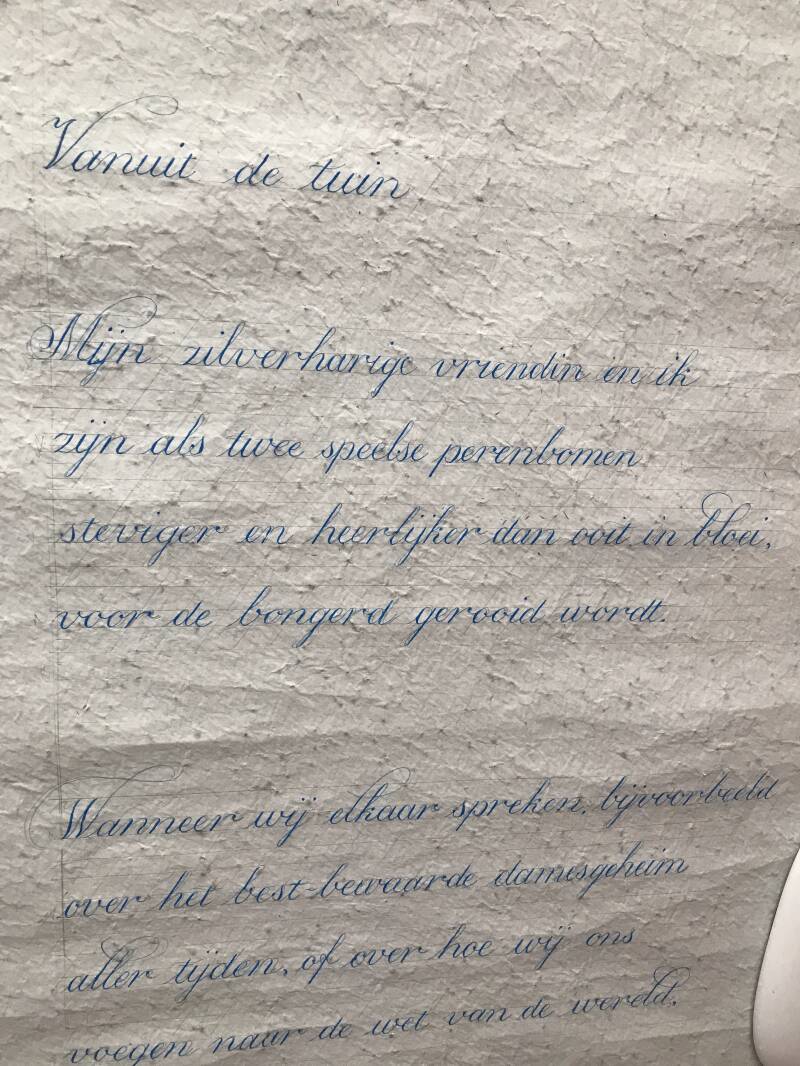 Vanuit de tuin
Mijn zilverharige vriendin en ik
zijn als twee speelse perenbomen
steviger en heerlijker dan ooit in bloei,
voor de bongerd gerooid wordt.
Wanneer wij elkaar spreken, bijvoorbeeld
over het best-bewaarde damesgeheim
aller tijden, of over hoe wij ons
voegen naar de wet van de wereld,